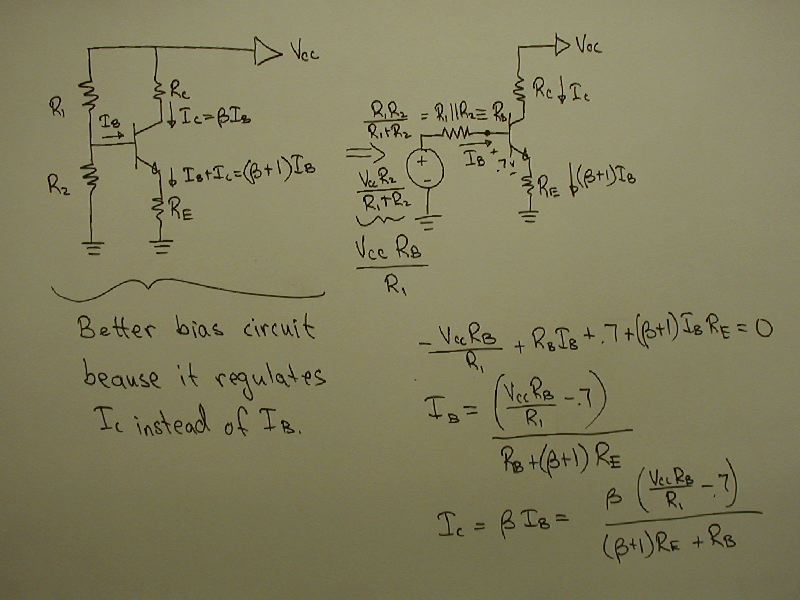 Vcc
R₁
Rc
I_B
Ic=βI_B
R₂
I_B+Ic=(β+1)I_B
R_E
Vcc
Rc
Ic
R₁R₂/(R₁+R₂) = R₁||R₂ ≡ R_B
I_B
+ .7 -
+
-
VccR₂/(R₁+R₂)
R_E
(β+1)I_B
Vcc R_B/R₁
Better bias circuit
beause it regulates
Ic instead of I_B.
-VccR_B/R₁ + R_B I_B + .7 + (β+1)I_B R_E = 0
I_B = (VccR_B/R₁ - .7)/(R_B+(β+1)R_E)
Ic = β I_B = β(VccR_B/R₁ - .7)/((β+1)R_E + R_B)